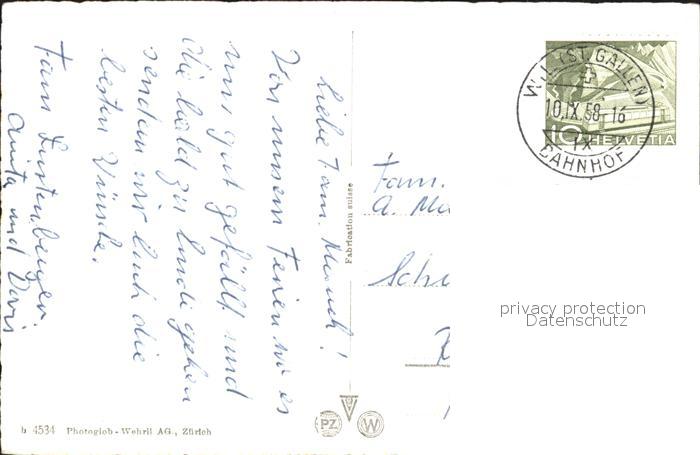 Liebe Fam. Mauch!
Von unsern Ferien wo es
uns gut gefällt und
die bald zu Ende gehen
senden wir Euch die
besten Wünsche.
Fam Lustenberger.
Anita und Doris
Fabrication suisse
b 4534 Photoglob-Wehrli AG., Zürich
PZ
W
WIL (ST. GALLEN)
10.IX.58-16
BAHNHOF
10 HELVETIA
Fam.
A. Ma
Schu
privacy protection
Datenschutz